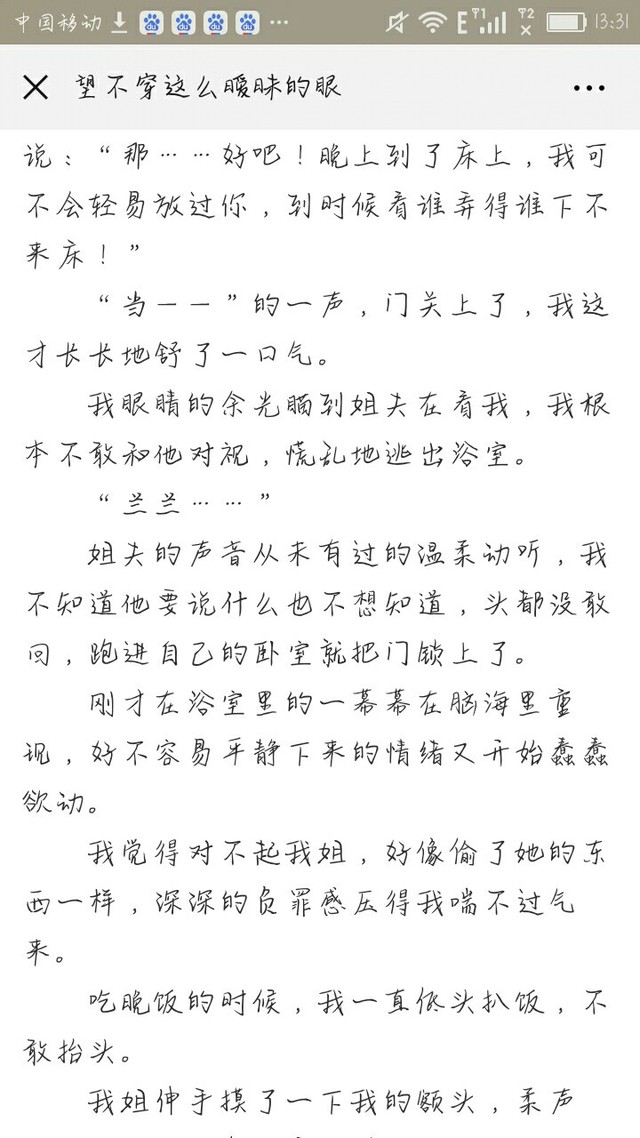 中国移动 13:31
望不穿这么暧昧的眼
说：“那……好吧！晚上到了床上，我可
不会轻易放过你，到时候看谁弄得谁下不
来床！”
“当一一”的一声，门关上了，我这
才长长地舒了一口气。
我眼睛的余光瞄到姐夫在看我，我根
本不敢和他对视，慌乱地逃出浴室。
“兰兰……”
姐夫的声音从未有过的温柔动听，我
不知道他要说什么也不想知道，头都没敢
回，跑进自己的卧室就把门锁上了。
刚才在浴室里的一幕幕在脑海里重
现，好不容易平静下来的情绪又开始蠢蠢
欲动。
我觉得对不起我姐，好像偷了她的东
西一样，深深的负罪感压得我喘不过气
来。
吃晚饭的时候，我一直低头扒饭，不
敢抬头。
我姐伸手摸了一下我的额头，柔声